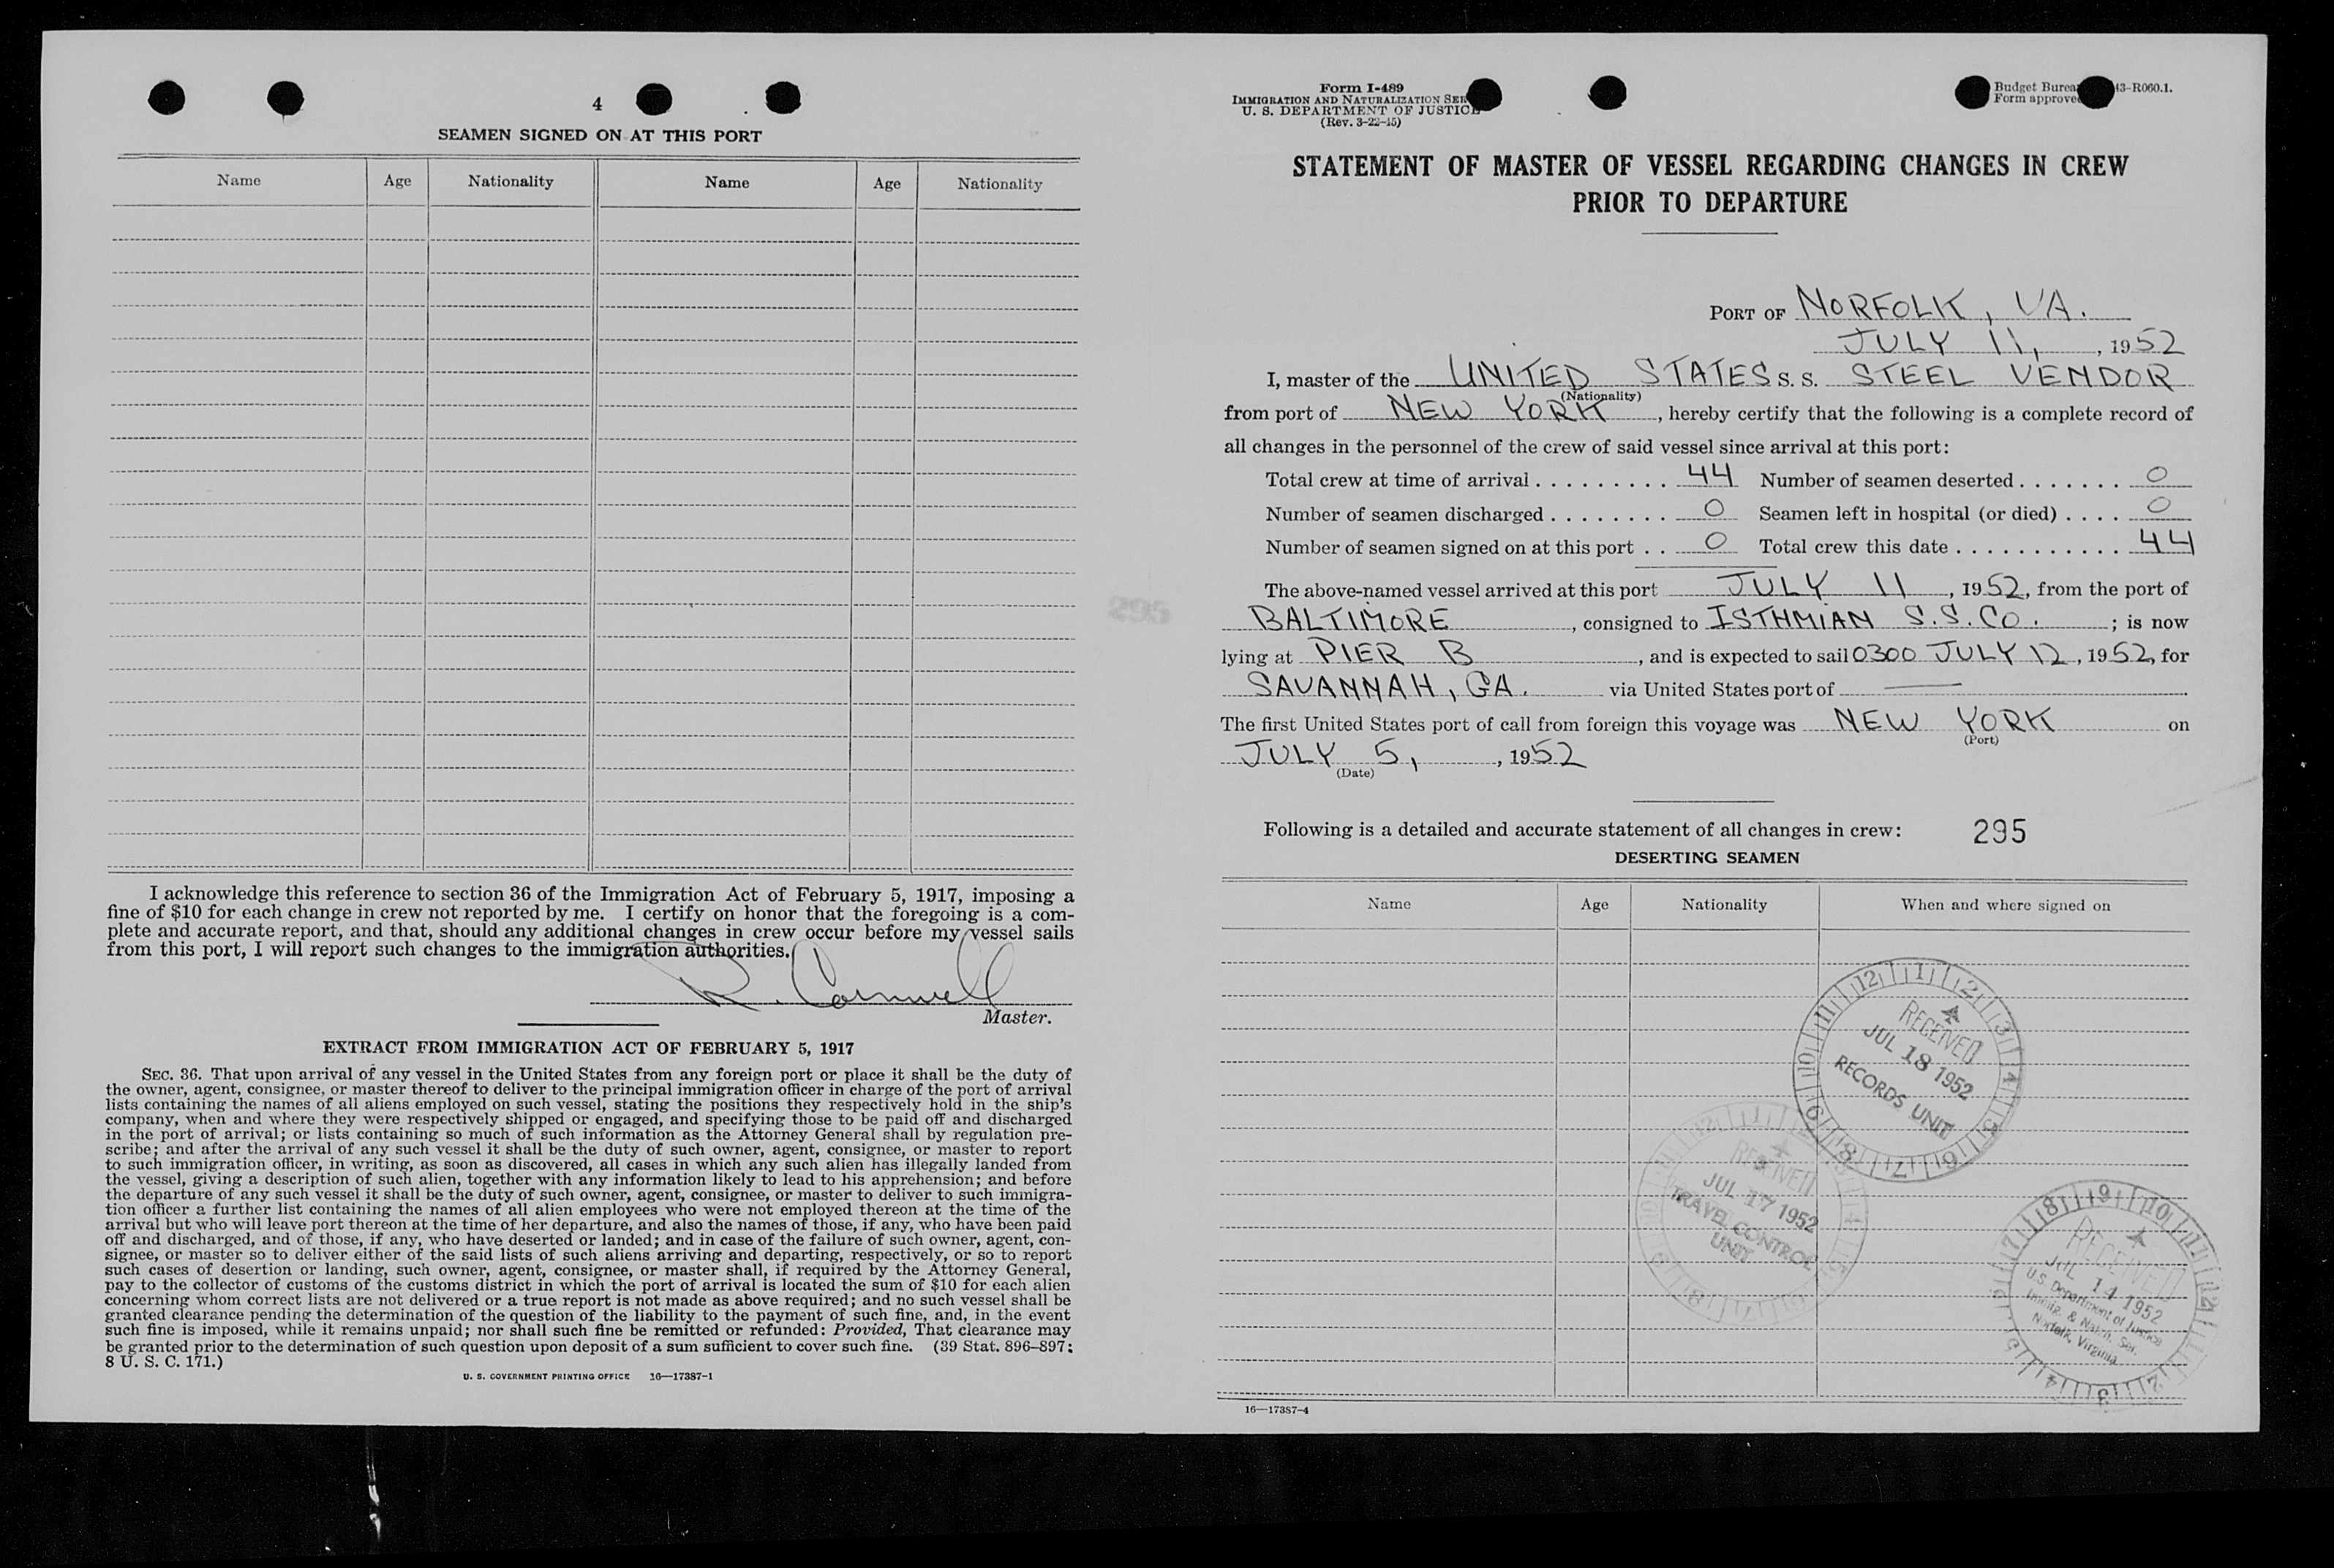 4
SEAMEN SIGNED ON AT THIS PORT
Name Age Nationality Name Age Nationality
I acknowledge this reference to section 36 of the Immigration Act of February 5, 1917, imposing a
fine of $10 for each change in crew not reported by me. I certify on honor that the foregoing is a com-
plete and accurate report, and that, should any additional changes in crew occur before my vessel sails
from this port, I will report such changes to the immigration authorities.
R. Cornwell
Master.
EXTRACT FROM IMMIGRATION ACT OF FEBRUARY 5, 1917
SEC. 36. That upon arrival of any vessel in the United States from any foreign port or place it shall be the duty of
the owner, agent, consignee, or master thereof to deliver to the principal immigration officer in charge of the port of arrival
lists containing the names of all aliens employed on such vessel, stating the positions they respectively hold in the ship's
company, when and where they were respectively shipped or engaged, and specifying those to be paid off and discharged
in the port of arrival; or lists containing so much of such information as the Attorney General shall by regulation pre-
scribe; and after the arrival of any such vessel it shall be the duty of such owner, agent, consignee, or master to report
to such immigration officer, in writing, as soon as discovered, all cases in which any such alien has illegally landed from
the vessel, giving a description of such alien, together with any information likely to lead to his apprehension; and before
the departure of any such vessel it shall be the duty of such owner, agent, consignee, or master to deliver to such immigra-
tion officer a further list containing the names of all alien employees who were not employed thereon at the time of the
arrival but who will leave port thereon at the time of her departure, and also the names of those, if any, who have been paid
off and discharged, and of those, if any, who have deserted or landed; and in case of the failure of such owner, agent, con-
signee, or master so to deliver either of the said lists of such aliens arriving and departing, respectively, or so to report
such cases of desertion or landing, such owner, agent, consignee, or master shall, if required by the Attorney General,
pay to the collector of customs of the customs district in which the port of arrival is located the sum of $10 for each alien
concerning whom correct lists are not delivered or a true report is not made as above required; and no such vessel shall be
granted clearance pending the determination of the question of the liability to the payment of such fine, and, in the event
such fine is imposed, while it remains unpaid; nor shall such fine be remitted or refunded: Provided, That clearance may
be granted prior to the determination of such question upon deposit of a sum sufficient to cover such fine. (39 Stat. 896–897;
8 U. S. C. 171.)
U. S. GOVERNMENT PRINTING OFFICE 16—17387-1
295
Form I-489
IMMIGRATION AND NATURALIZATION SER
U. S. DEPARTMENT OF JUSTICE
(Rev. 3-22-45)
Budget Burea 43-R060.1.
Form approve
STATEMENT OF MASTER OF VESSEL REGARDING CHANGES IN CREW
PRIOR TO DEPARTURE
PORT OF NORFOLK, VA.
JULY 11, , 1952
I, master of the UNITED STATES S. S. STEEL VENDOR
(Nationality)
from port of NEW YORK , hereby certify that the following is a complete record of
all changes in the personnel of the crew of said vessel since arrival at this port:
Total crew at time of arrival . . . . . . . . . 44 Number of seamen deserted . . . . . . . 0
Number of seamen discharged . . . . . . . . 0 Seamen left in hospital (or died) . . . . 0
Number of seamen signed on at this port . . 0 Total crew this date . . . . . . . . . . . 44
The above-named vessel arrived at this port JULY 11 , 1952, from the port of
BALTIMORE , consigned to ISTHMIAN S.S.CO. ; is now
lying at PIER B , and is expected to sail 0300 JULY 12, 1952, for
SAVANNAH, GA. via United States port of —
The first United States port of call from foreign this voyage was NEW YORK on
(Port)
JULY 5, , 1952
(Date)
Following is a detailed and accurate statement of all changes in crew: 295
DESERTING SEAMEN
Name Age Nationality When and where signed on
12 1 2 3 4 5 6 7 8 9 10 11
RECEIVED
JUL 18 1952
RECORDS UNIT
RECEIVED
JUL 17 1952
TRAVEL CONTROL
UNIT
RECEIVED
JUL 14 1952
U.S. Department of Justice
Immig. & Natn. Ser.
Norfolk, Virginia
16—17387-4